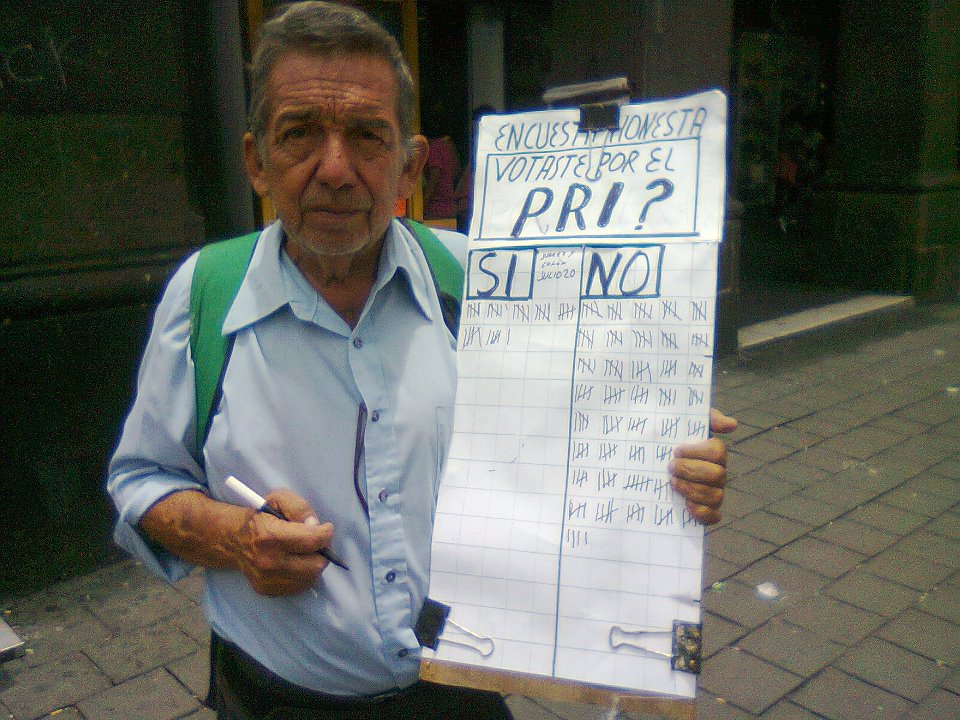 ENCUESTA HONESTA
VOTASTE POR EL
PRI?
SI
JUAREZ Y
COLÓN
JULIO 20
NO